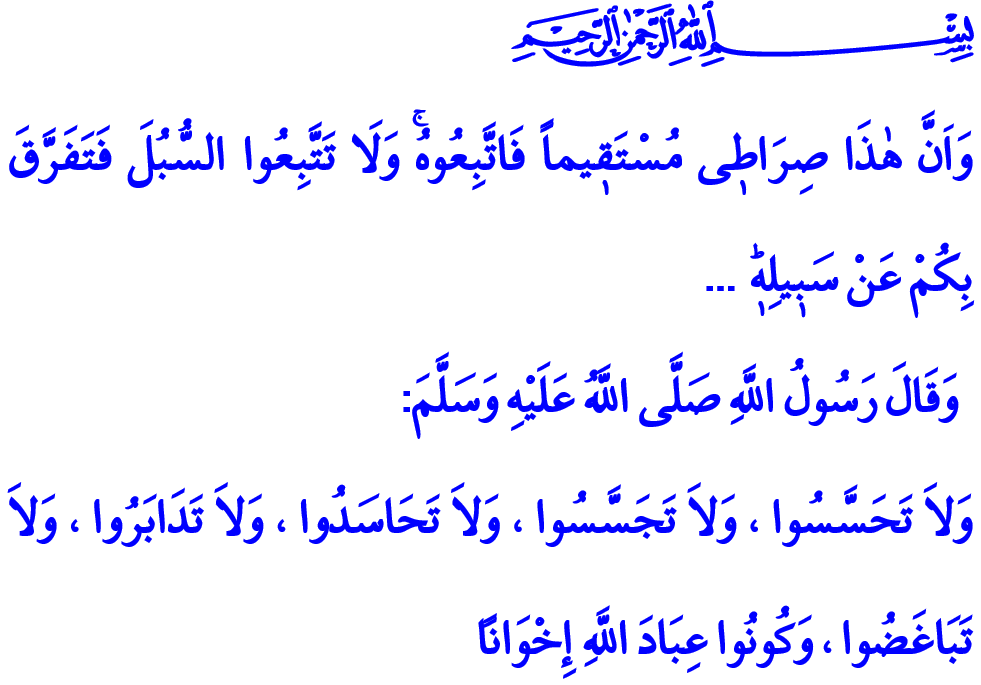 بِسْمِ اللّٰهِ الرَّحْمٰنِ الرَّحِيمِ
وَاَنَّ هٰذَا صِرَاط۪ى مُسْتَق۪يماً فَاتَّبِعُوهُۚ وَلَا تَتَّبِعُوا السُّبُلَ فَتَفَرَّقَ
بِكُمْ عَنْ سَب۪يلِه۪ؕ ...
وَقَالَ رَسُولُ اللَّهِ صَلَّى اللَّهُ عَلَيْهِ وَسَلَّمَ:
وَلاَ تَحَسَّسُوا ، وَلاَ تَجَسَّسُوا ، وَلاَ تَحَاسَدُوا ، وَلاَ تَدَابَرُوا ، وَلاَ
تَبَاغَضُوا ، وَكُونُوا عِبَادَ اللَّهِ إِخْوَانًا